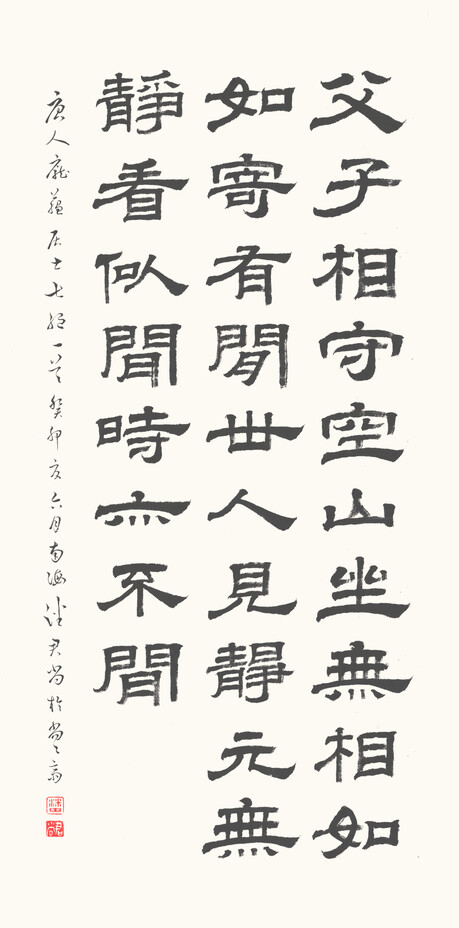 父子相守空山坐無相如
如寄有閒世人見靜元無
靜看似閒時亦不閒
唐人龐蘊居士七絕一首癸卯夏六月南海君尚於尚齋